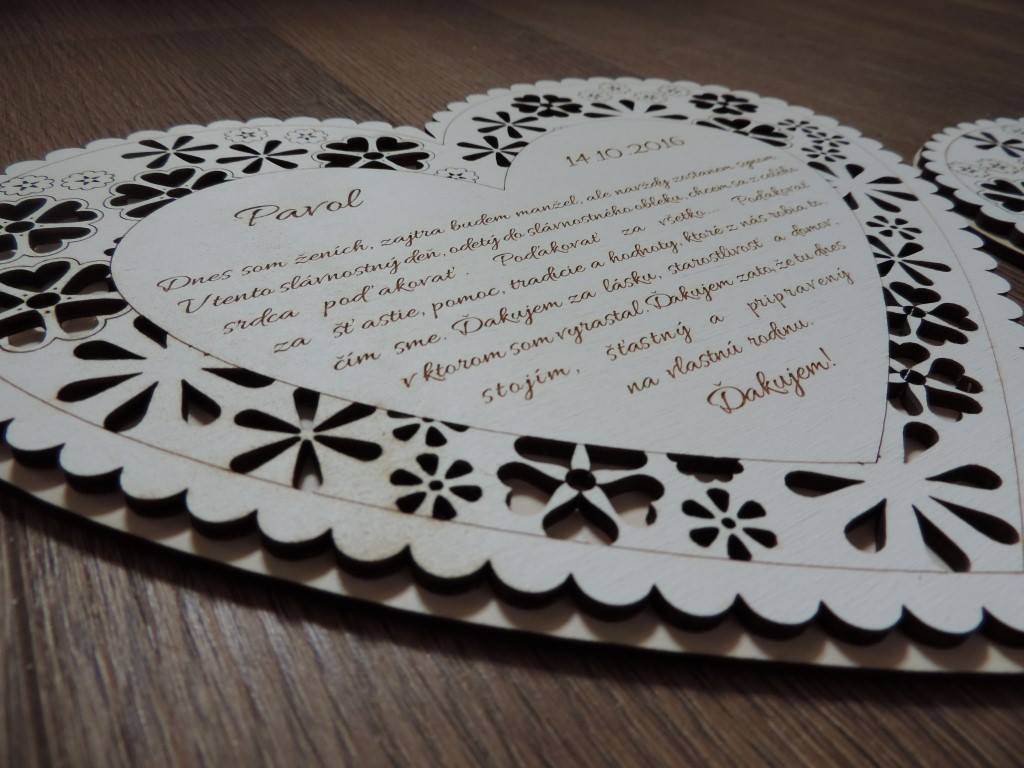 Pavol
14.10.2016
Dnes som ženích, zajtra budem manžel, ale navždy zostanem synom.
V tento slávnostný deň, odetý do slávnostného obleku, chcem sa z celého
srdca poďakovať. Poďakovať za všetko... Poďakovať
za šťastie, pomoc, tradície a hodnoty, ktoré z nás robia to,
čím sme. Ďakujem za lásku, starostlivosť a domov,
v ktorom som vyrastal. Ďakujem zato, že tu dnes
stojím, šťastný a pripravený
na vlastnú rodinu.
Ďakujem!